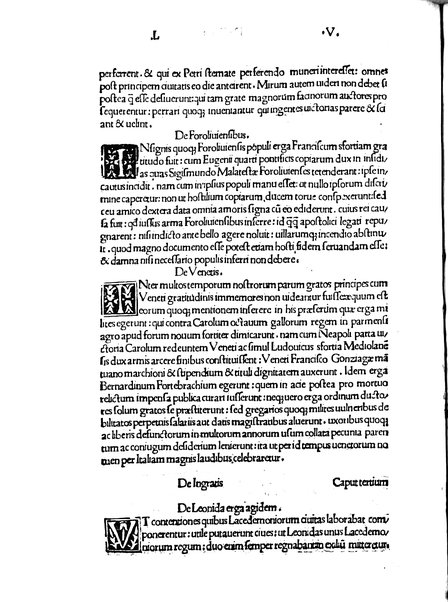 .L .V.
perferrent. & qui ex Petri stemate perferendo muneri interesset: omnes
post principem ciuitatis eo die anteirent. Mirum autem uideri non debet si
postea q̃ esse desiuerunt: qui tam grate magnorum facinorum auctores pro
sequerentur: perrari quoq; inueniantur qui ingentes uictorias parere & sci
ant & uelint.
De Foroliuiensibus.
INsignis quoq; Foroliuiensis põpuli erga Franciscum sfortiam gra
titudo fuit: cum Eugenii quarti pontificis copiarum dux in insidi
as quas Sigismundo Malatestæ Foroliuienses tetenderant: ipse in
cautus incidit. nam cum impsius populi manu esset: ut nullo ipsorum discri
mine caperetur: non ut hostilium copiarum, ducem toruе consp.xerunt: sed
ceu amico dextera data omnia amoris signa cũ eo ediderunt. cuius rei cau/
sa fuit: qđ iussis arma Foroliuiensibus inferre: id q̃q̃ apostolici legati repu
gnarent: nisi indicto ante bello agere noluit: uillarumq; incendio abstinu
it. quod magno documento esse potest etiam hosti fidem seruandam esse:
& damna nisi necessario populis inferri non debere.
De Venetis.
INter multos temporum nostrorum parum gratos principes cum
Veneti gratitudinis immemores non uideantur fuisse: æquum est
eorum quoq; mentionem inserere in his præsertim quæ erga mi
lites egerunt: qui contra Carolum octauum gallorum regem in parmensi
agro apud forum nouum fortiter dimicarunt. nam cum Neapoli parta ui/
ctoria Carolum redeuntem Veneti ac simul Ludouicus sfortia Mediolanẽ
sis dux armis arcere finibus constituissent: Veneti Francisco Gonzagæ mã
tuano marchioni & stipendium & tituli dignitatem auxerunt. Idem erga
Bernardinum Fortebrachium egerunt: quem in acie postea pro mortuo
relictum impensa publica curari iusserunt: neq; uero erga ordinum ducto/
res solum gratos se præstiterunt: sed gregarios quoq; milites uulneribus de
bilitatos perpetuis salariis aut datis magistratibus aluerunt. uxoribus quoq;
ac liberis defunctorum in multorum annorum usum collata pecunia paren
tum ac coniugum desiderium lenierunt: ita ut per id tempus uenetorum no
men per Italiam magnis laudibus celebraretur.
De Ingratis Caput tertium
De Leonida erga agidem.
VT contentiones quibus Lacedemoniorum ciuitas laborabat com/
ponerentur: utile putauerunt ciues: ut Leonidas unus Lacedemo/
niorum regum: duo enim semper regnabant in exiliũ mitteretur.